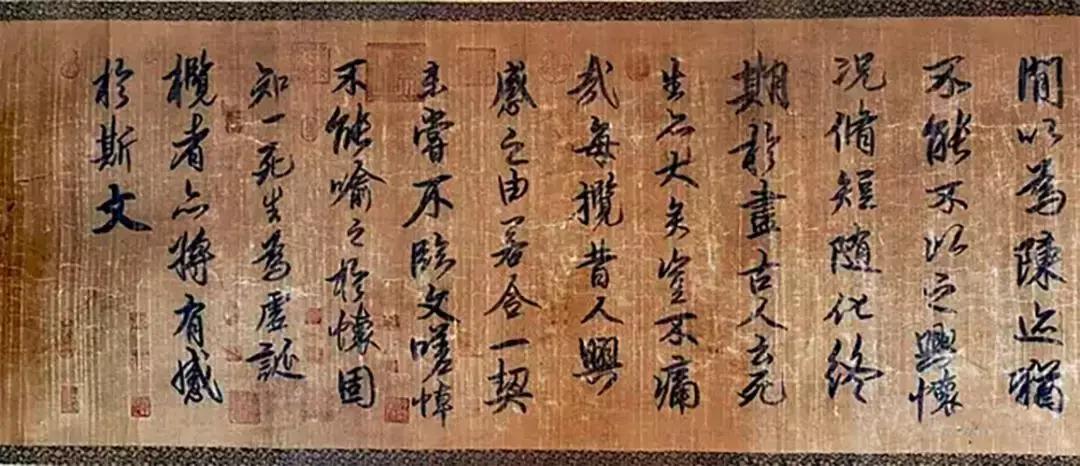 間以為陳迹猶
不能不以之興懷
況脩短随化終
期於盡古人云死
生亦大矣豈不痛
哉每攬昔人興
感之由若合一契
未嘗不臨文嗟悼
不能喻之於懷固
知一死生為虛誕
攬者亦將有感
於斯文